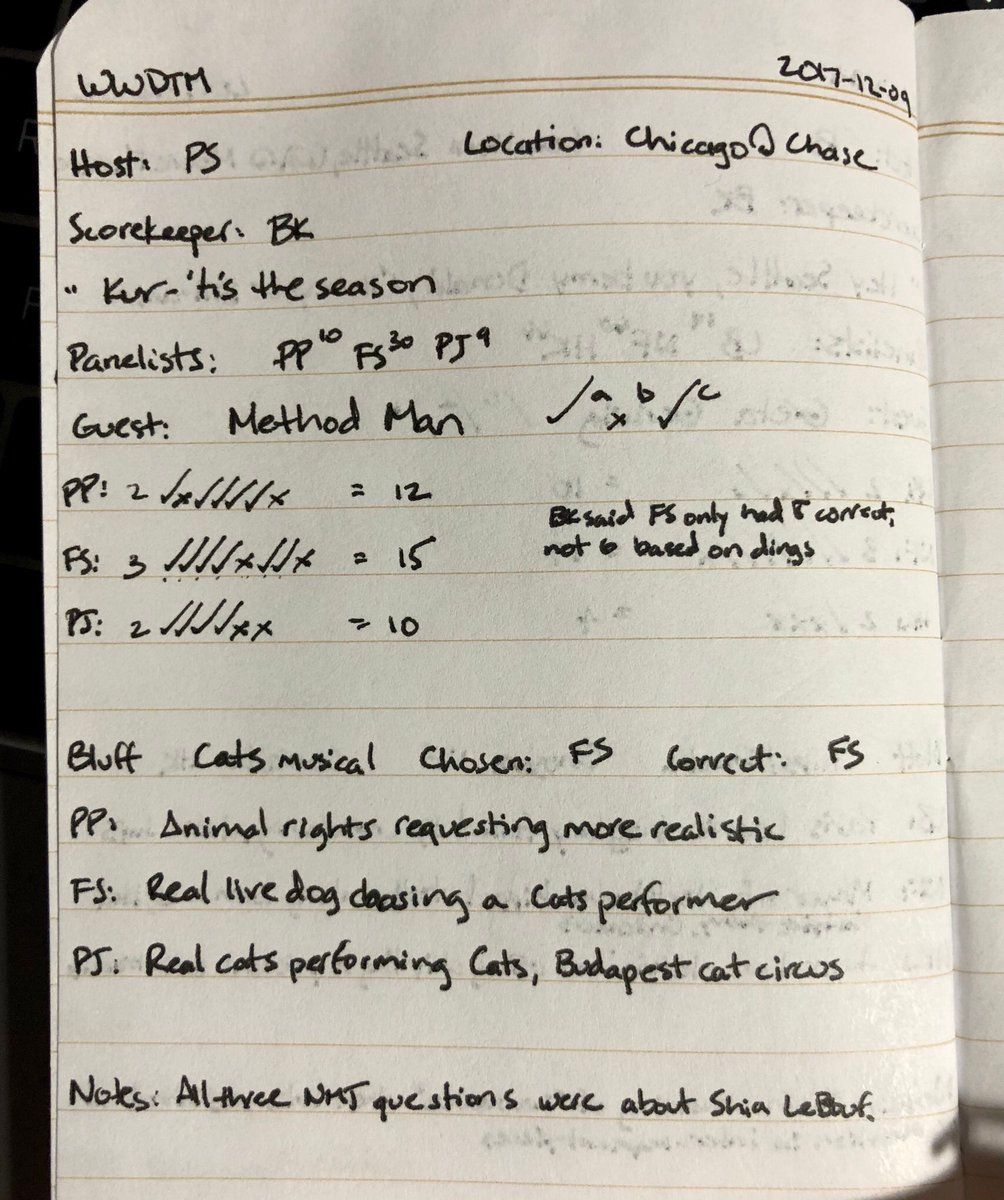 WWDTM 2017-12-09
Host: PS Location: Chicago @ Chase
Scorekeeper: BK
" Kur-'tis the season
Panelists: PP¹⁰ FS³⁰ PJ⁹
Guest: Method Man ✓a ×b ✓c
PP: 2 ✓×✓✓✓✓× = 12
BK said FS only had 5 correct,
FS: 3 ✓✓✓✓×✓✓× = 15
not 6 based on dings
PJ: 2 ✓✓✓✓×× = 10
Bluff Cats Musical Chosen: FS Correct: FS
PP: Animal rights requesting more realistic
FS: Real live dog chasing a Cats performer
PJ: Real cats performing Cats, Budapest cat circus
Notes: All three NMJ questions were about Shia LeBouf.